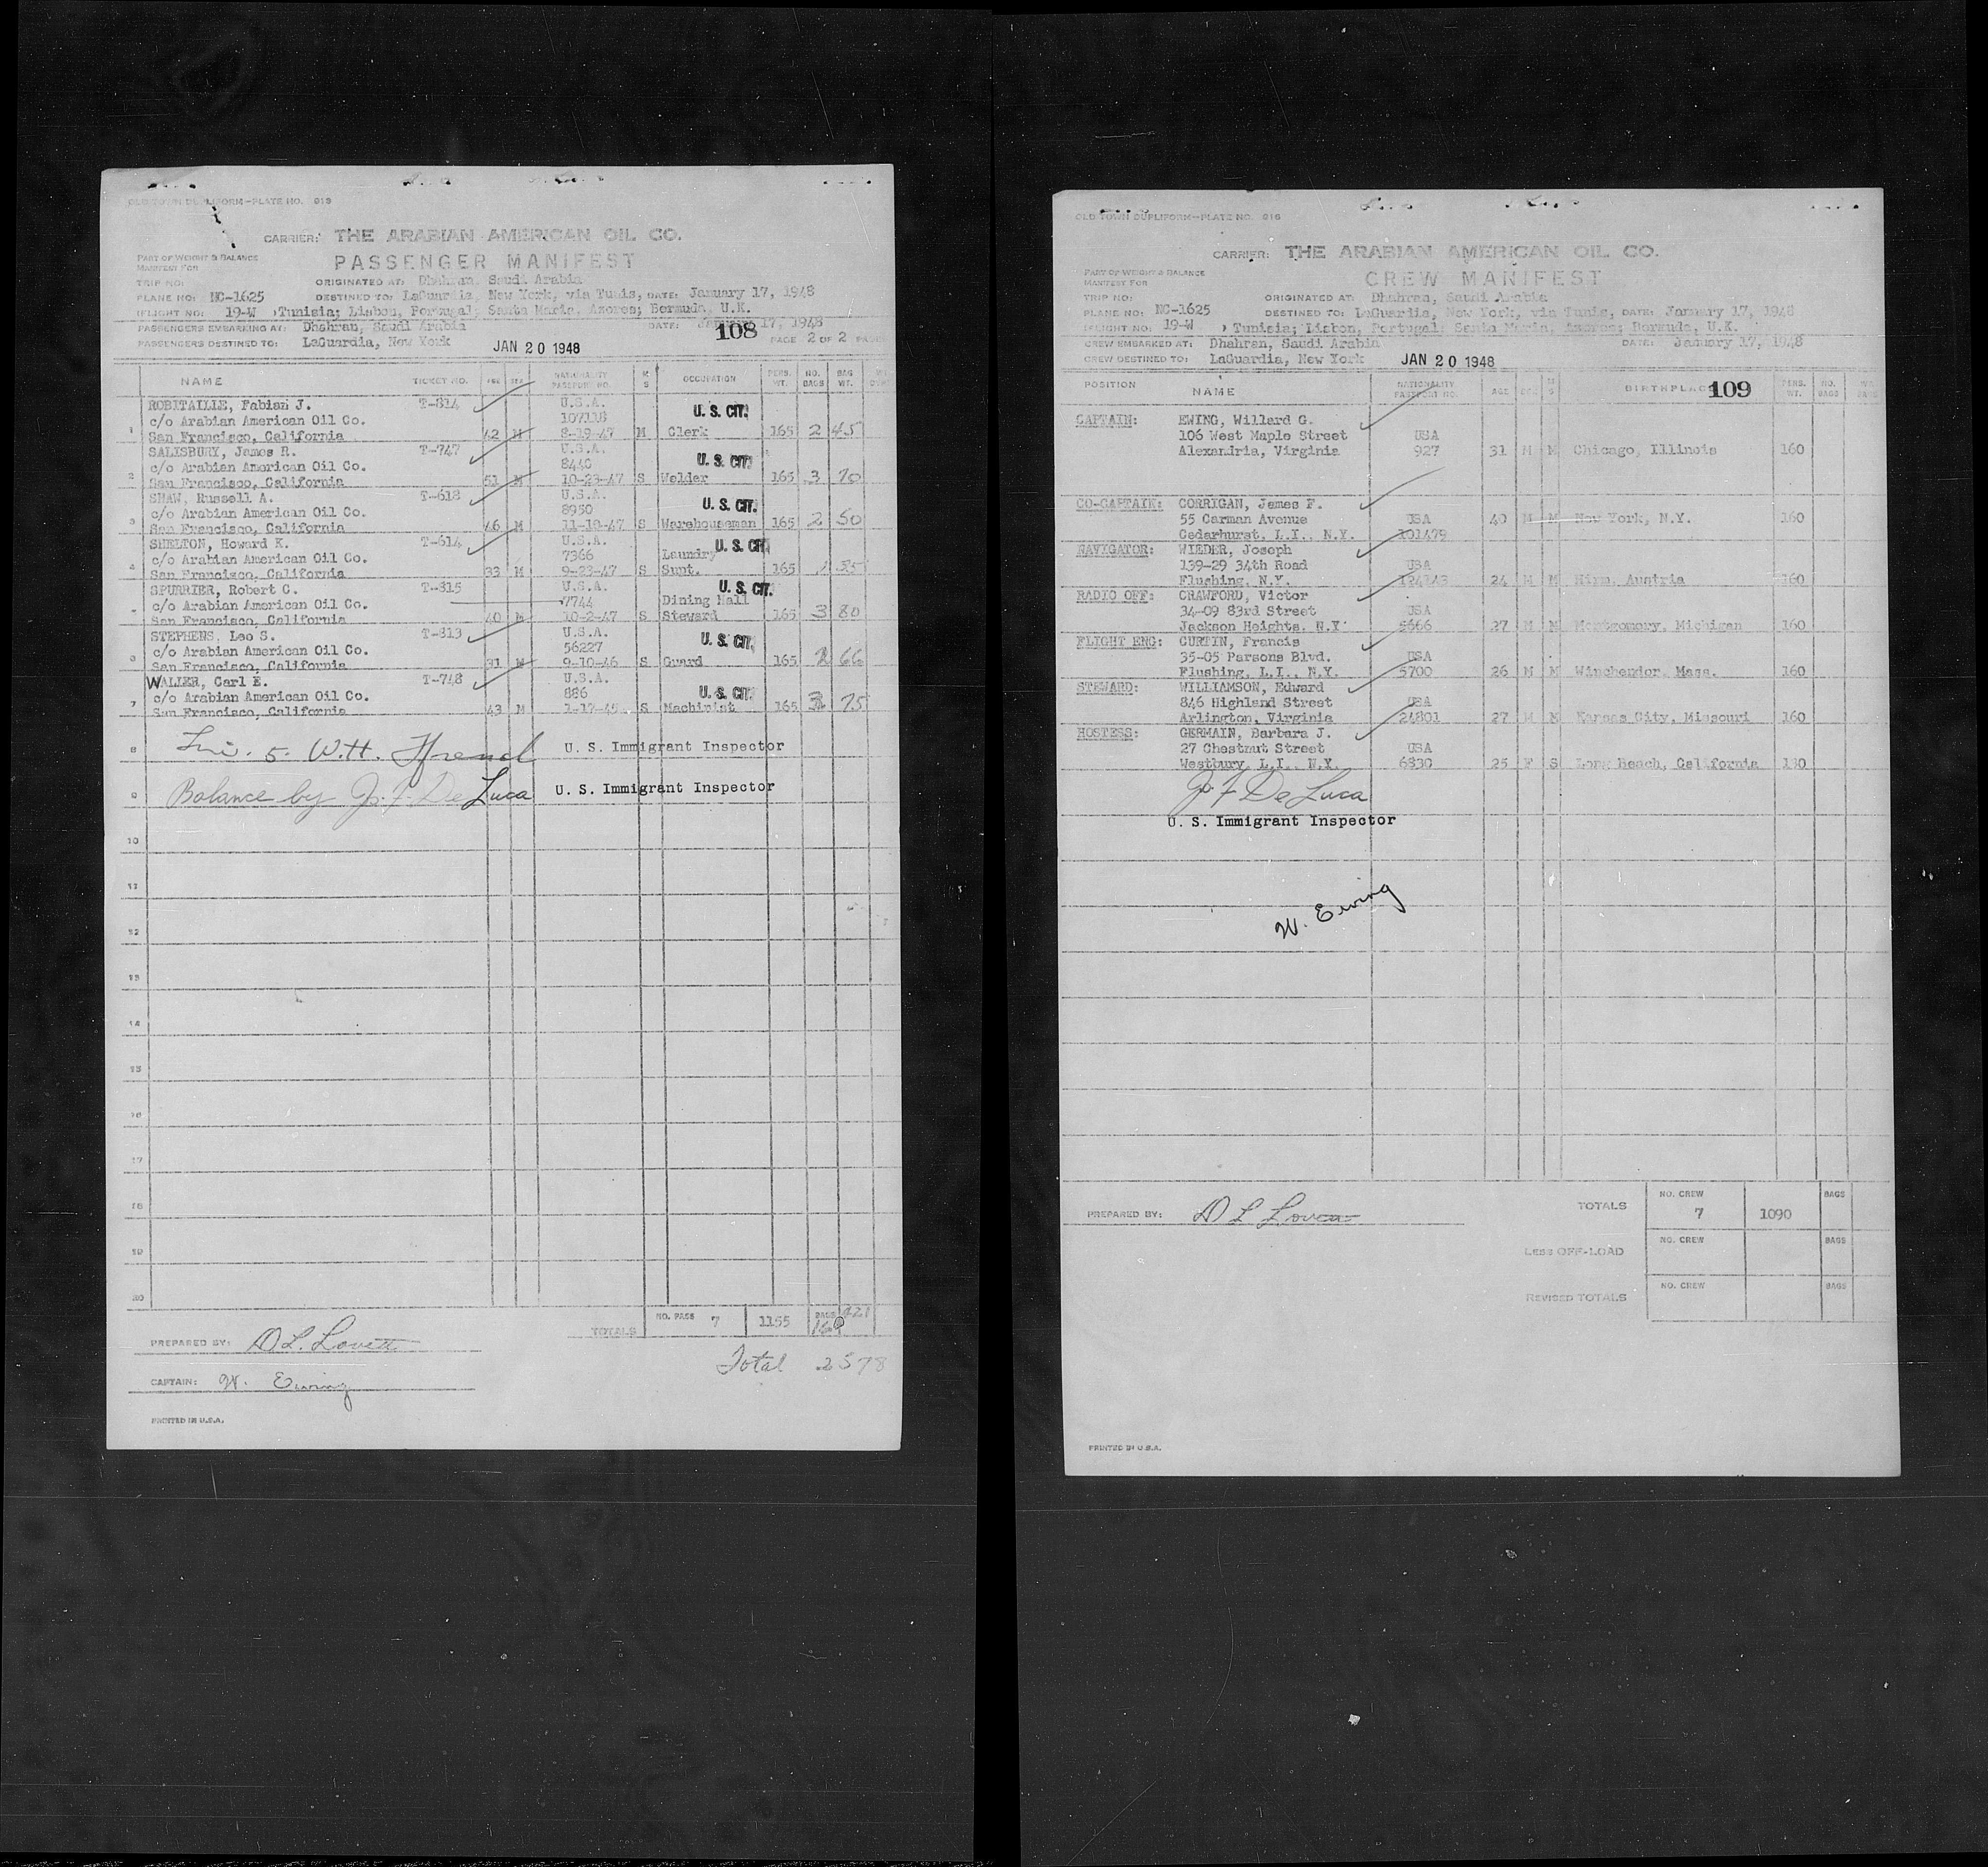 OLD TOWN DUPLIFORM—PLATE NO. 919
CARRIER: THE ARABIAN AMERICAN OIL CO.
PART OF WEIGHT & BALANCE
MANIFEST FOR
PASSENGER MANIFEST
TRIP NO: ORIGINATED AT: Dhahran, Saudi Arabia
PLANE NO: NC-1625 DESTINED TO: LaGuardia, New York, via Tunis, DATE: January 17, 1948
FLIGHT NO: 19-W Tunisia; Lisbon, Portugal; Santa Maria, Azores; Bermuda, U.K.
PASSENGERS EMBARKING AT: Dhahran, Saudi Arabia DATE: January 17, 1948
108
PASSENGERS DESTINED TO: LaGuardia, New York JAN 20 1948 PAGE 2 OF 2 PAGES
NAME TICKET NO. AGE SEX NATIONALITY PASSPORT NO. M S OCCUPATION PERS. WT. NO. BAGS BAG WT.
ROBITAILLE, Fabian J. T-814 U.S.A.
c/o Arabian American Oil Co. 107118 U. S. CIT.
1 San Francisco, California 42 M 8-19-47 M Clerk 165 2 45
SALISBURY, James R. T-747 U.S.A.
c/o Arabian American Oil Co. 8440 U. S. CIT.
2 San Francisco, California 51 M 10-23-47 S Welder 165 3 70
SHAW, Russell A. T-618 U.S.A.
c/o Arabian American Oil Co. 8950 U. S. CIT.
3 San Francisco, California 46 M 11-10-47 S Warehouseman 165 2 50
SHELTON, Howard K. T-614 U.S.A.
c/o Arabian American Oil Co. 7366 Laundry U. S. CIT.
4 San Francisco, California 33 M 9-23-47 S Supt. 165
SPURRIER, Robert C. T-815 U.S.A. U. S. CIT.
c/o Arabian American Oil Co. 7744 Dining Hall
San Francisco, California 40 M 10-2-47 S Steward 165 3 80
STEPHENS, Leo S. T-813 U.S.A.
c/o Arabian American Oil Co. 56227 U. S. CIT.
6 San Francisco, California 31 M 9-10-46 S Guard 165 2 66
WALLER, Carl E. T-748 U.S.A.
c/o Arabian American Oil Co. 886 U. S. CIT.
7 San Francisco, California 43 M 1-17-45 S Machinist 165 3 75
8 5. W.H. U. S. Immigrant Inspector
9 Balance by J. F. De Luca U. S. Immigrant Inspector
10
11
12
13
14
15
16
17
18
19
20
TOTALS NO. PASS 7 1155 BAGS
PREPARED BY: D L. Lovett
Total 2578
CAPTAIN: W. Ewing
PRINTED IN U.S.A.
OLD TOWN DUPLIFORM—PLATE NO. 916
CARRIER: THE ARABIAN AMERICAN OIL CO.
PART OF WEIGHT & BALANCE
MANIFEST FOR
CREW MANIFEST
TRIP NO: ORIGINATED AT: Dhahran, Saudi Arabia
PLANE NO: NC-1625 DESTINED TO: LaGuardia, New York, via Tunis, DATE: January 17, 1948
FLIGHT NO: 19-W Tunisia; Lisbon, Portugal; Santa Maria, Azores; Bermuda, U.K.
CREW EMBARKED AT: Dhahran, Saudi Arabia DATE: January 17, 1948
CREW DESTINED TO: LaGuardia, New York JAN 20 1948
POSITION NAME NATIONALITY PASSPORT NO. AGE SEX M S BIRTHPLACE 109 PERS. WT. NO. BAGS
CAPTAIN: EWING, Willard G.
106 West Maple Street USA
Alexandria, Virginia 927 31 M M Chicago, Illinois 160
CO-CAPTAIN: CORRIGAN, James F.
55 Carman Avenue USA 40 M M New York, N.Y. 160
Cedarhurst, L.I., N.Y. 101479
NAVIGATOR: WIEDER, Joseph
139-29 34th Road USA
Flushing, N.Y. 124743 24 M M Hirm, Austria 160
RADIO OFF: CRAWFORD, Victor
34-09 83rd Street USA
Jackson Heights, N.Y. 5666 27 M M Montgomery, Michigan 160
FLIGHT ENG: CURTIN, Francis
35-05 Parsons Blvd. USA
Flushing, L.I., N.Y. 5700 26 M M Winchendor, Mass. 160
STEWARD: WILLIAMSON, Edward
846 Highland Street USA
Arlington, Virginia 24801 27 M M Kansas City, Missouri 160
HOSTESS: GERMAIN, Barbara J.
27 Chestnut Street USA
Westbury, L.I., N.Y. 6830 25 F S Long Beach, California 130
J. F De Luca
U. S. Immigrant Inspector
W. Ewing
PREPARED BY: D L Lovett
TOTALS NO. CREW 7 1090 BAGS
LESS OFF-LOAD NO. CREW BAGS
REVISED TOTALS NO. CREW BAGS
PRINTED IN U.S.A.